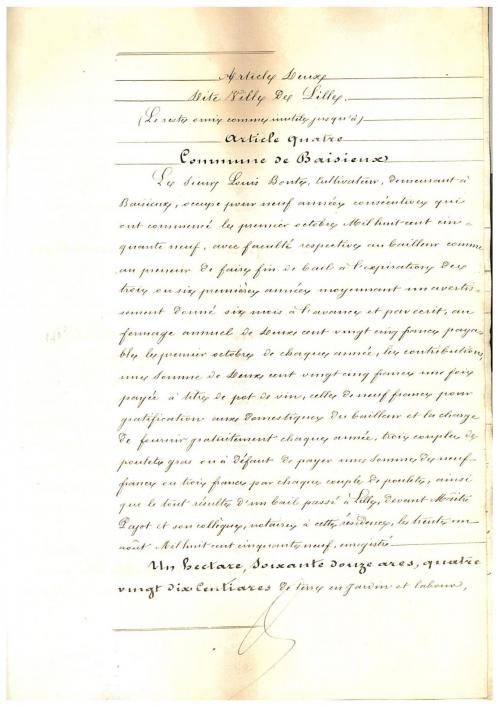 Article Deux
Dite Ville De Lille.
(Le reste omis comme inutile jusqu'à)
Article quatre
Commune de Baisieux
Le sieur Louis Bonte, cultivateur, demeurant à
Baisieux, occupe pour neuf années consécutives qui
ont commencé le premier octobre Mil huit cent cin-
quante neuf, avec faculté respective au bailleur comme
au preneur de faire fin de bail à l'expiration des
trois ou six premières années moyennant un avertis-
sement donné six mois à l'avance et par écrit, au
fermage annuel de Deux cent vingt cinq francs paya-
ble le premier octobre de chaque année, les contributions,
une somme de Deux cent vingt cinq francs une fois
payée à titre de pot de vin, celle de neuf francs pour
gratification aux domestiques du bailleur et la charge
de fournir gratuitement chaque année, trois couples de
poulets gras ou à défaut de payer une somme de neuf
francs ou trois francs par chaque couple de poulets, ainsi
que le tout résulte d'un bail passé à Lille, devant Maître
Pajot et son collègue, notaires à cette résidence, le trente un
août Mil huit cent cinquante neuf, enregistré
Un hectare, soixante douze ares, quatre
vingt dix Centiares de terre en Jardin et labour,